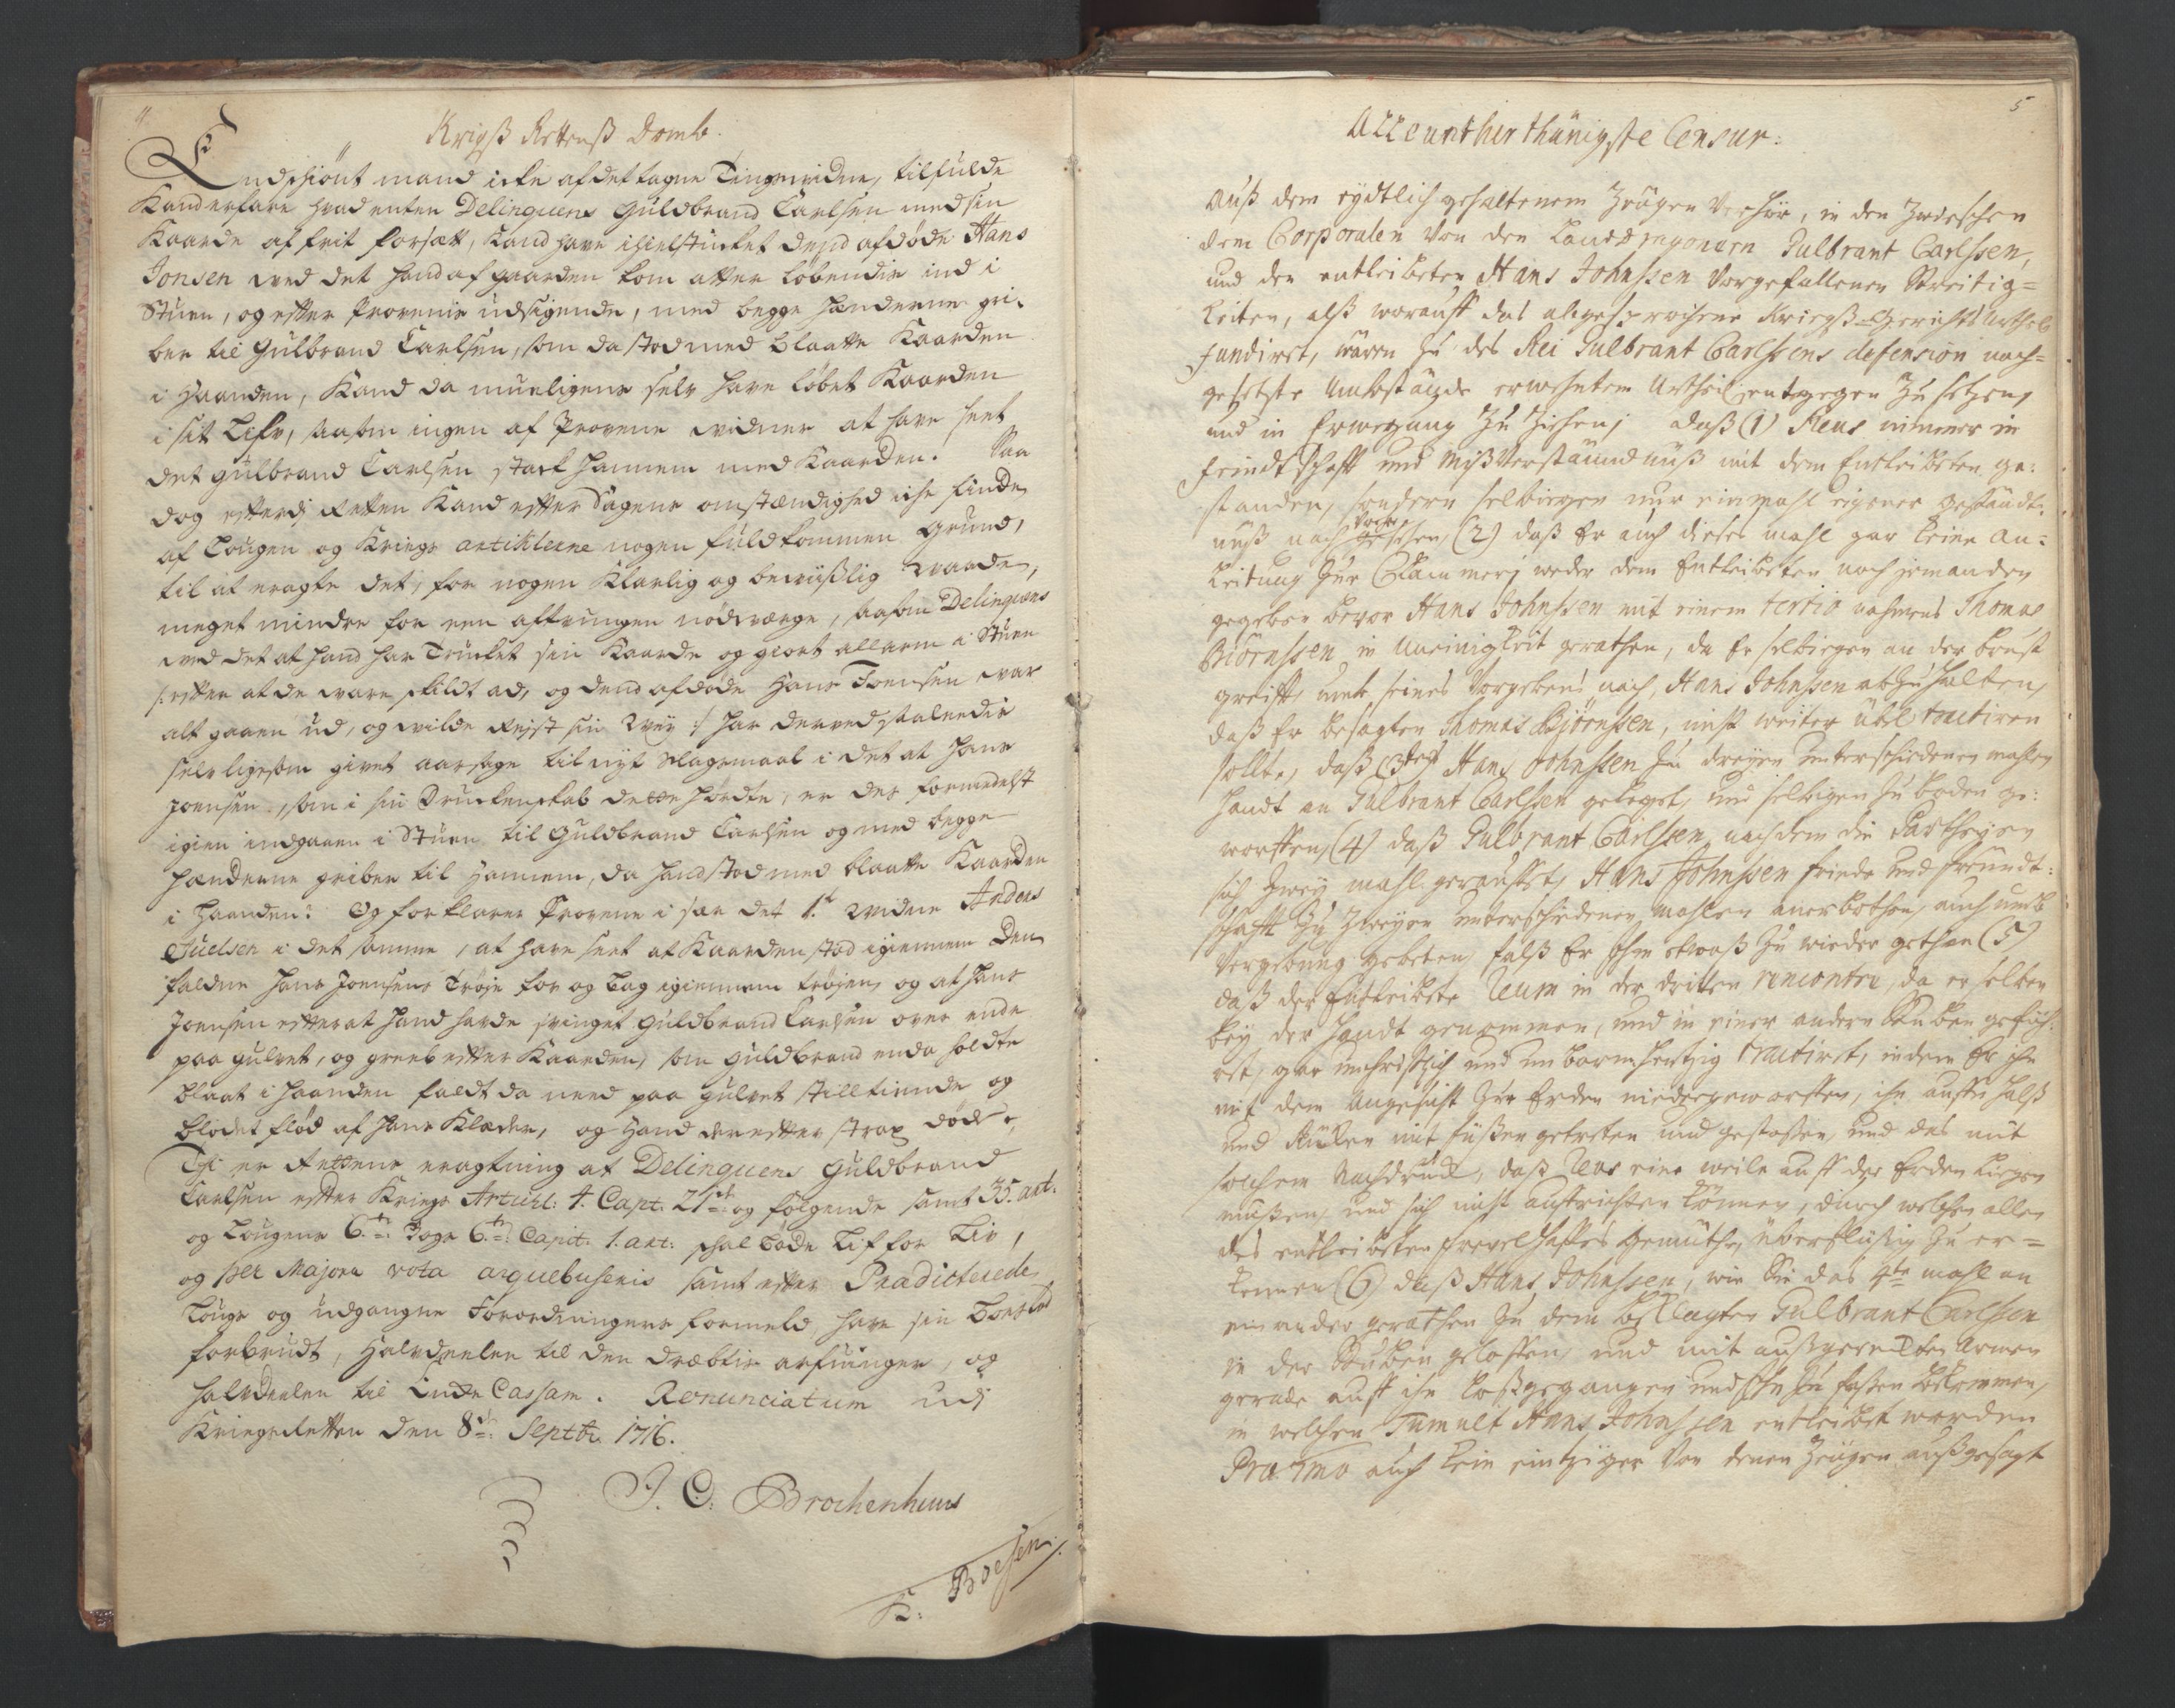 4
Krigß Rettenß Domb.
Endschiönt mand icke af det tagne Tingsvidne, tilfulde
Kand erfare hvad enten Delinquens Guldbrand Carlsen med sin
Kaarde af frit forsætt, Kand have ihielstucket dend afdøde Hans
Jonsen ved det hand af gaarden kom atter løbendis ind i
Stuen, og efter Provenis udsigende, med begge hænderne gri-
ber til Gulbrand Carlsen, som da stod med blaatte Kaarden
i Haanden, Kand da mueligens selv have løbet Kaarden
i sit Lifv, saasom ingen af Provene vidner at have seet
det gulbrand Carlsen stack hannem med Kaarden. Saa
dog efterdj Retten Kand efter Sagens omstændighed iche finde
af Lougen og Krigs artiklerne nogen fuldkommen grund,
til at eragte det, for nogen klarlig og beviißlig Vaade,
meget mindre for een aftvungen nødværge, saasom Delinqvens
ved det at hand har Trucket sin Kaarde og giort allarm i Stuen
/: efter at de vare skildt ad, og dend afdøde Hans Joensen var
alt gaaen ud, og vilde Rejst sin Vey :/ har derved staaendis
selv ligesom givet aarsage til nyt slagsmaal i det at Hans
Joensen, som i sin Druckenskab dette hørdte, er der formedelst
igien indgaaen i Stuen til Guldbrand Carlsen og med begge
hænderne griben til hannem, da hand stod med blaatte Kaarden
i Haanden: Og forklarer Provene i sær det 1.te vidne Anders
Juelsen i det samme, at have seet at Kaarden stod igiennem den
faldne Hans Joensens Trøje for og bag igiennem trøjen, og at Hans
Joensen efter at hand havde svinget Guldbrand Carlsen over ende
paa gulvet, og greeb efter Kaarden, som guldbrand enda holdte
blaat i haanden faldt da need paa gulvet stilltiende og
blodet flød af hans Klæder, og hand derefter strax døde,
Thi er Rettens eragtning at Delinquens Guldbrand
Carlsen efter Krigs Articul: 1. Capt: 21de og følgende samt 35. art:
og Lougens 6te Bogs 6te Capit: 1. art: skal bøde Lif for Liv,
og per Majora vota arquebuseris samt efter Prædicterede
Lougs og udgangne Forordningers formeld have sin boeslod
forbrudt, Halvdeelen til den dræbtis arfvinger, og
halvdeelen til Qvæst Cassam. Renunciatum udj
Krigs Retten den 8de Septbr. 1716.
J. C: Brochenhuus
K: Boesen.
5
Alleunterthänigste Censur:
Auß dem eydtlich gehaltenem Zeügen Verhör, in den Zwischen
dem Corporalen Von den Landdragonern Gulbrant Carlssen,
und den entleibeten Hans Johnssen Vorgefallenen Streitig=
keiten, alß worauff das abgesprochene Kriegß-Gerichts Urtheil
fundiret, wären zu des Rei Gulbrant Carlssens defension nach=
gesetzte Umbstände erwehntem Urtheil entgegen zu setzen,
und in Erwegung zu ziehen, daß (1) Reus nimmer in
feindtschafft und mißVerständnüß mit dem Entleibeten ge=
standen, sondern selbiegen nur einmahl eigener geständt=
nüß nach Vorher gesehen, (2) daß Er auch dieses mahl gar keine an=
leitung zur Clammerj weder dem Entleibeten noch jemanden
gegeben bevor Hans Johnssen mit einem tertio nahmens Thomas
Biörnssen in Uneinigkeit gerathen, da Er selbiegen an der brust
greifft, umb seines Vorgebens nach, Hans Johnssen abzuhalten,
daß Er besagten Thomas Bjørnssen, nicht weiter übel tractiren
sollte, daß (3tens) Hans Johnssen zu dreyen unterschiedenen mahlen
handt an Gulbrant Carlssen geleget, und selbigen zu boden ge=
worffen, (4) daß Gulbrant Carlssen nachdem die Partheyen
sich Zwey mahl gerauffet, Hans Johnssen friede und freündt=
schafft zu Zweyen unterschiedenen mahlen anerbothen, auch umb
Vergebung gebeten, falß Er ihm etwaß zu wieder gethan (5)
daß der Entleibete Reum in der dritten rencontre, da er selben
bey der handt genommen, und in einer andern Stuben gefüh=
ret, gar unchristlich und unbarmhertzig tractiret, indem Er ihn
mit dem Angesicht zur Erden niedergeworffen, ihn auffn Halß
und Rücken mit füßen getreten und gestoßen, und das mit
solchem Nachdruck, daß Reus eine weile auff der Erden liegen
müßen, und sich nicht auffrichten können, durch welches alles
des entleibeten frevelhafftes Gemüthe, überflüßig zu er=
kennen (6) daß Hans Johnssen, wie Sie das 4te mahl an
einander gerathen zu dem beklagten Gulbrant Carlssen
in der Stuben geloffen, und mit außgereckten Armen
gerade auff ihn loßgegangen und ihn zu faßen bekommen,
in welchen Tumult Hans Johnssen entleibet worden
Pro 7mo auch kein eintziger Von denen Zeügen außgesagt